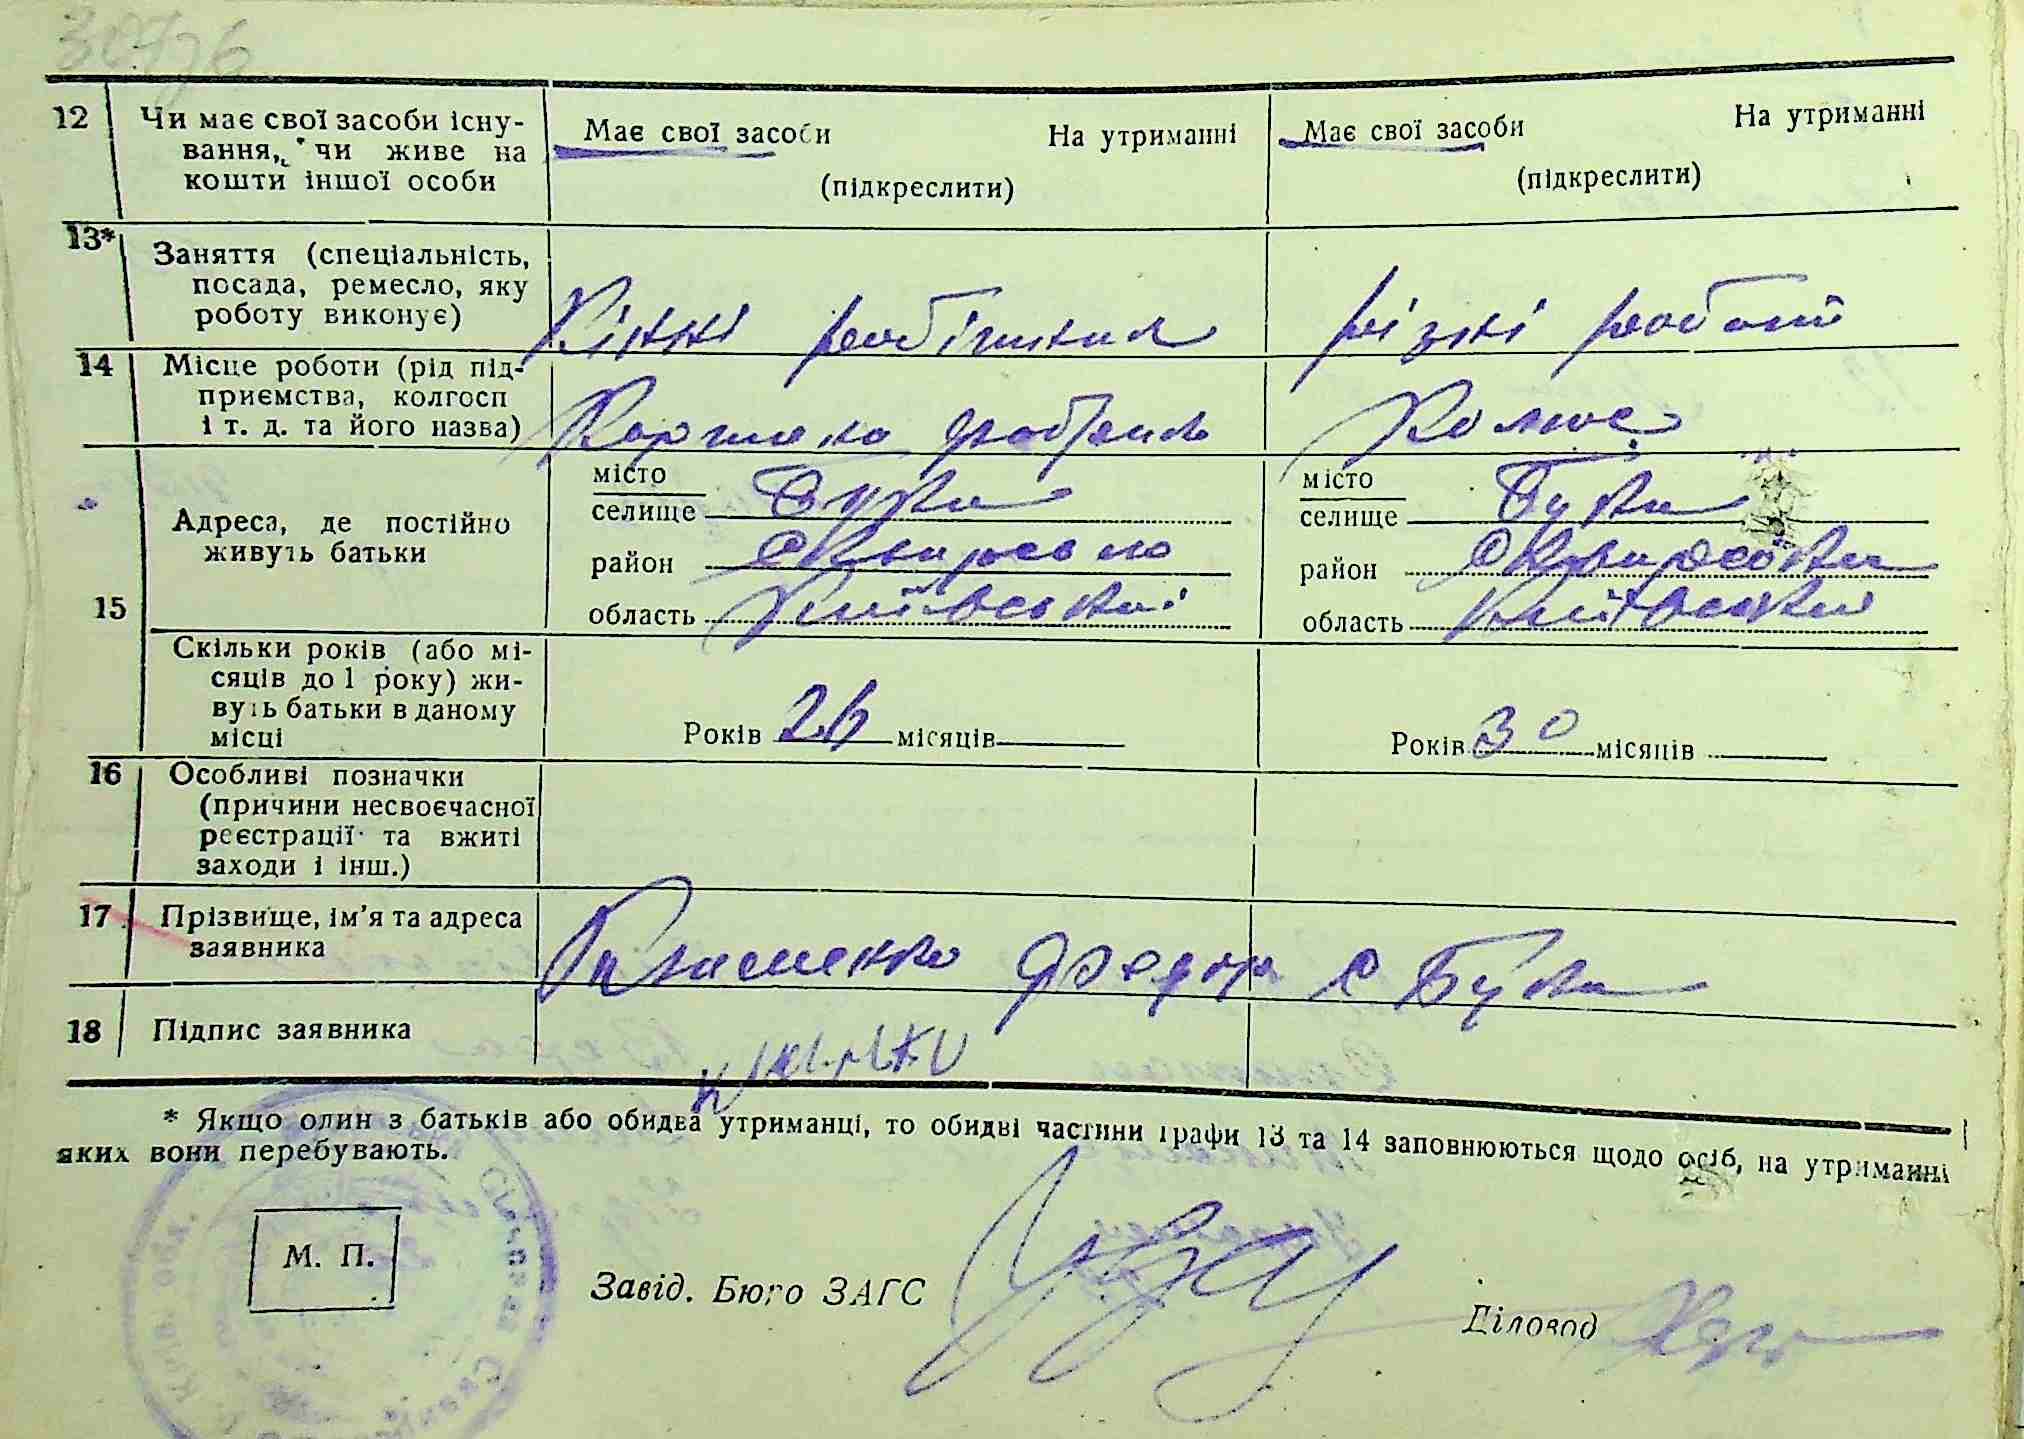 12 Чи має свої засоби існу- Має свої засоби На утриманні Має свої засоби На утриманні
вання, чи живе на
кошти іншої особи (підкреслити) (підкреслити)
13* Заняття (спеціальність,
посада, ремесло, яку
роботу виконує) різні роботи
14 Місце роботи (рід під-
приємства, колгосп
і т. д. та його назва)
15 Адреса, де постійно
живуть батьки
місто
селище Бука
район Сквирсько
область Київської
місто
селище Бука
район Сквирська
область Київська
Скільки років (або мі-
сяців до 1 року) жи-
вуть батьки в даному
місці Років 26 місяців Років 30 місяців
16 Особливі позначки
(причини несвоєчасної
реєстрації та вжиті
заходи і інш.)
17 Прізвище, ім'я та адреса
заявника Федор с Бука
18 Підпис заявника
* Якщо один з батьків або обидва утриманці, то обидві частини графи 13 та 14 заповнюються щодо осіб, на утриманні
яких вони перебувають.
М. П.
Завід. Бюро ЗАГС
Діловод